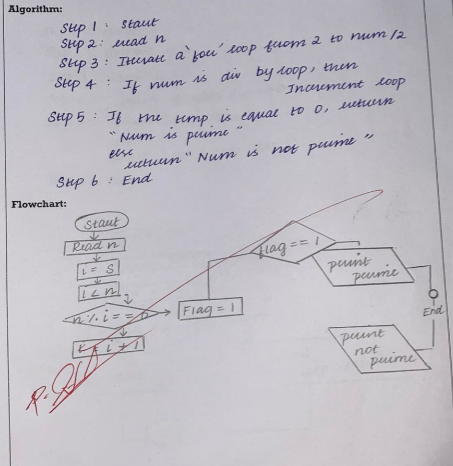 Algorithm:
Step 1 : Start
Step 2 : read n
Step 3 : Iterate a 'for' loop from 2 to num/2
Step 4 : If num is div by loop, then
Increment loop
Step 5 : If the temp is equal to 0, return
"Num is prime"
else
return "Num is not prime"
Step 6 : End
Flowchart:
Start
Read n
i = S
i < n
n % i == 0
Flag = 1
i + 1
flag == 1
print
prime
End
print
not
prime